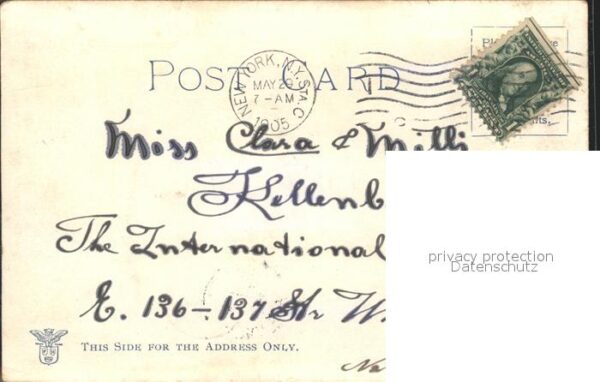 POST CARD
NEW YORK, N.Y. STA. C
MAY 29
7-AM
1905
Miss Clara & Milli
Kellenb
The International
E. 136-137 Str W.
privacy protection
Datenschutz
THIS SIDE FOR THE ADDRESS ONLY.